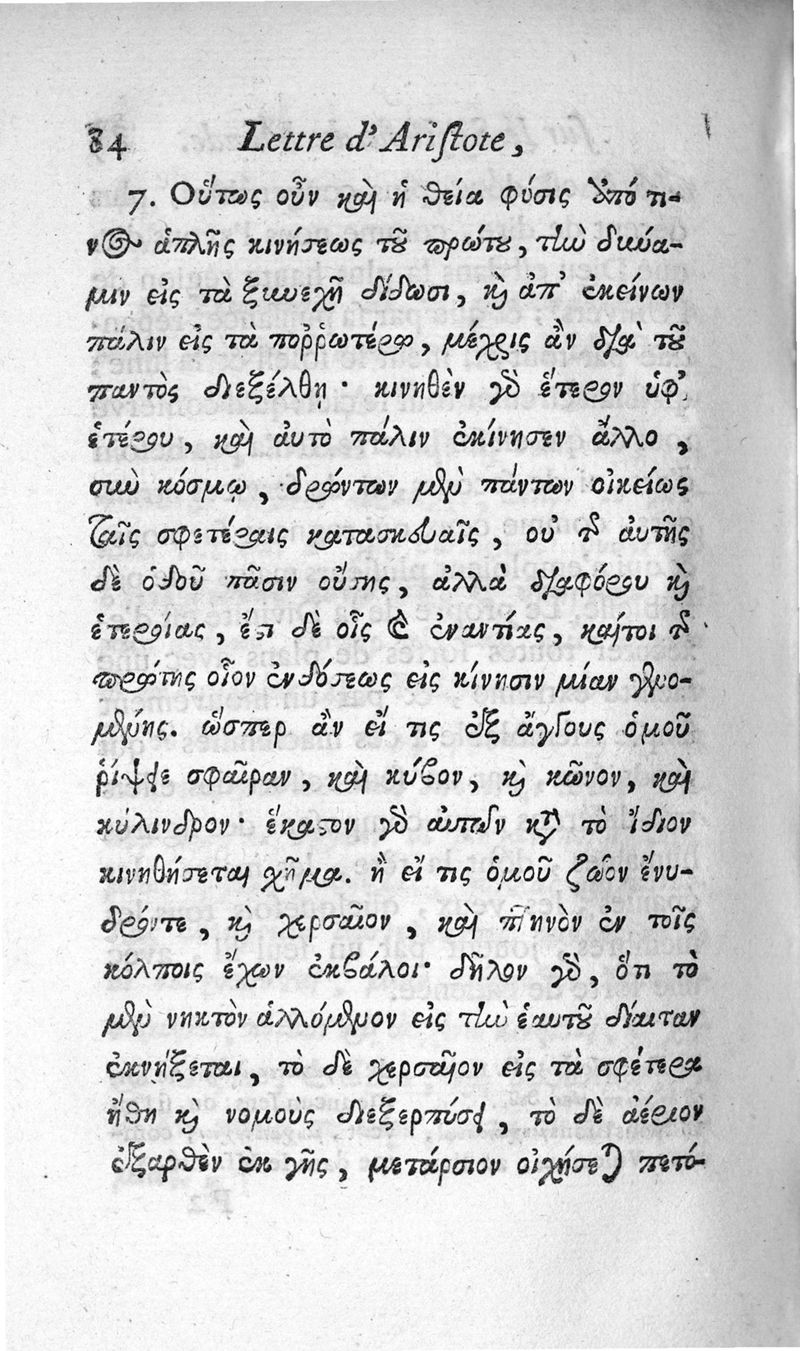 84 Lettre d'Aristote,
7. Οὕτως οὖν καὶ ἡ θεία φύσις ἀπό τι-
νος ἁπλῆς κινήσεως τοῦ πρώτου, τὴν δύνα-
μιν εἰς τὰ ξυνεχῆ δίδωσι, καὶ ἀπ' ἐκείνων
πάλιν εἰς τὰ ποῤῥωτέρω, μέχρις ἂν διὰ τοῦ
παντὸς διεξέλθῃ· κινηθὲν γὰρ ἕτερον ὑφ'
ἑτέρου, καὶ αὐτὸ πάλιν ἐκίνησεν ἄλλο,
σὺν κόσμῳ, δρώντων μὲν πάντων οἰκείως
ταῖς σφετέραις κατασκευαῖς, οὐ τῆς αὐτῆς
δὲ ὁδοῦ πᾶσιν οὔσης, ἀλλὰ διαφόρου καὶ
ἑτεροίας, ἔτι δὲ οἷς καὶ ἐναντίας, καίτοι τῆς
πρώτης οἷον ἐνδόσεως εἰς κίνησιν μίαν γενο-
μένης. ὥσπερ ἂν εἴ τις ἐξ ἄγγους ὁμοῦ
ῥίψειε σφαῖραν, καὶ κύβον, καὶ κῶνον, καὶ
κύλινδρον· ἕκαστον γὰρ αὐτῶν κατὰ τὸ ἴδιον
κινηθήσεται χῆμα. ἢ εἴ τις ὁμοῦ ζῶον ἔνυ-
δρόντε, καὶ χερσαῖον, καὶ πτηνὸν ἐν τοῖς
κόλποις ἔχων ἐκβάλοι· δῆλον γὰρ, ὅτι τὸ
μὲν νηκτὸν ἁλλόμενον εἰς τὴν ἑαυτοῦ δίαιταν
ἐκνήξεται, τὸ δὲ χερσαῖον εἰς τὰ σφέτερα
ἤθη καὶ νομοὺς διεξερπύσει, τὸ δὲ ἀέριον
ἐξαρθὲν ἐκ γῆς, μετάρσιον οἰχήσεται πετό-